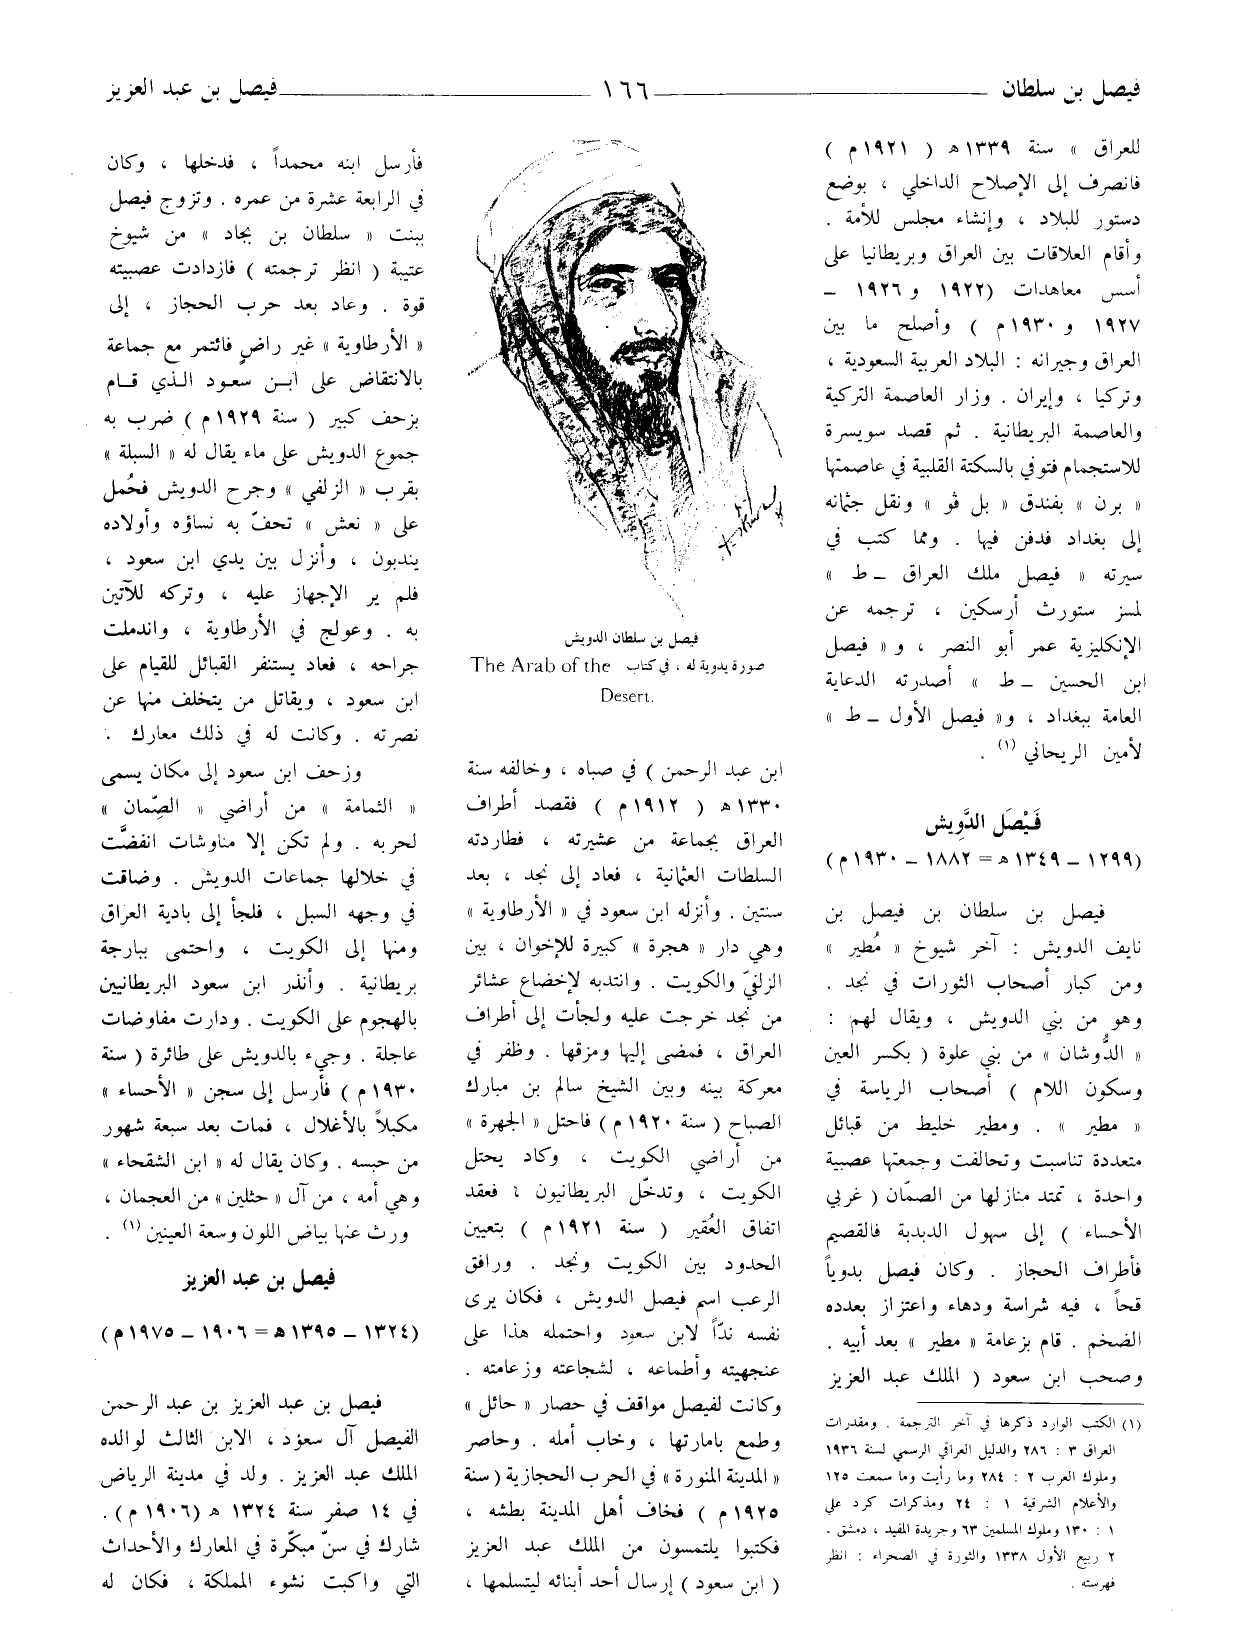 فيصل بن سلطان ــــــ ١٦٦ ــــــ فيصل بن عبد العزيز
للعراق » سنة ١٣٣٩ ه ( ١٩٢١ م )
فانصرف إلى الإصلاح الداخلي ، بوضع
دستور للبلاد ، وإنشاء مجلس للأمة .
وأقام العلاقات بين العراق وبريطانيا على
أسس معاهدات (١٩٢٢ و ١٩٢٦ –
١٩٢٧ و ١٩٣٠ م ) وأصلح ما بين
العراق وجيرانه : البلاد العربية السعودية ،
وتركيا ، وإيران . وزار العاصمة التركية
والعاصمة البريطانية . ثم قصد سويسرة
للاستجمام فتوفي بالسكتة القلبية في عاصمتها
« برن » بفندق « بل ڤو » ونقل جثمانه
إلى بغداد فدفن فيها . ومما كتب في
سيرته « فيصل ملك العراق – ط »
لمسز ستورث أرسكين ، ترجمه عن
الإنكليزية عمر أبو النصر ، و « فيصل
ابن الحسين – ط » أصدرته الدعاية
العامة ببغداد ، و« فيصل الأول – ط »
لأمين الريحاني (١) .
فَيْصَل الدَّوِيش
(١٢٩٩ – ١٣٤٩ ه = ١٨٨٢ – ١٩٣٠ م )
فيصل بن سلطان بن فيصل بن
نايف الدويش : آخر شيوخ « مُطير »
ومن كبار أصحاب الثورات في نجد .
وهو من بني الدويش ، ويقال لهم :
« الدُّوشان » من بني علوة ( بكسر العين
وسكون اللام ) أصحاب الرياسة في
« مطير » . ومطير خليط من قبائل
متعددة تناسبت وتحالفت وجمعتها عصبية
واحدة ، تمتد منازلها من الصمّان ( غربي
الأحساء ) إلى سهول الدبدبة فالقصيم
فأطراف الحجاز . وكان فيصل بدوياً
قحاً ، فيه شراسة ودهاء واعتزاز بعدده
الضخم . قام بزعامة « مطير » بعد أبيه .
وصحب ابن سعود ( الملك عبد العزيز
(١) الكتب الوارد ذكرها في آخر الترجمة . ومقدرات
العراق ٣ : ٢٨٦ والدليل العراقي الرسمي لسنة ١٩٣٦
وملوك العرب ٢ : ٢٨٤ وما رأيت وما سمعت ١٢٥
والأعلام الشرقية ١ : ٢٤ ومذكرات كرد علي
١ : ١٣٠ وملوك المسلمين ٦٣ وجريدة المفيد ، دمشق .
٢ ربيع الأول ١٣٣٨ والثورة في الصحراء : انظر
فهرسته .
فيصل بن سلطان الدويش
صورة يدوية له ، في كتاب The Arab of the
Desert.
ابن عبد الرحمن ) في صباه ، وخالفه سنة
١٣٣٠ ه ( ١٩١٢ م ) فقصد أطراف
العراق بجماعة من عشيرته ، فطاردته
السلطات العثمانية ، فعاد إلى نجد ، بعد
سنتين . وأنزله ابن سعود في « الأرطاوية »
وهي دار « هجرة » كبيرة للإخوان ، بين
الزلفيّ والكويت . وانتدبه لإخضاع عشائر
من نجد خرجت عليه ولجأت إلى أطراف
العراق ، فمضى إليها ومزقها . وظفر في
معركة بينه وبين الشيخ سالم بن مبارك
الصباح ( سنة ١٩٢٠ م ) فاحتل « الجهرة »
من أراضي الكويت ، وكاد يحتل
الكويت ، وتدخّل البريطانيون ؛ فعقد
اتفاق العُقير ( سنة ١٩٢١ م ) بتعيين
الحدود بين الكويت ونجد . ورافق
الرعب اسم فيصل الدويش ، فكان يرى
نفسه ندّاً لابن سعود واحتمله هذا على
عنجهيته وأطماعه ، لشجاعته وزعامته .
وكانت لفيصل مواقف في حصار « حائل »
وطمع بامارتها ، وخاب أمله . وحاصر
« المدينة المنورة » في الحرب الحجازية ( سنة
١٩٢٥ م ) فخاف أهل المدينة بطشه ،
فكتبوا يلتمسون من الملك عبد العزيز
( ابن سعود ) إرسال أحد أبنائه ليتسلمها ،
فأرسل ابنه محمداً ، فدخلها ، وكان
في الرابعة عشرة من عمره . وتزوج فيصل
ببنت « سلطان بن بجاد » من شيوخ
عتيبة ( انظر ترجمته ) فازدادت عصبيته
قوة . وعاد بعد حرب الحجاز ، إلى
« الأرطاوية » غير راضٍ فائتمر مع جماعة
بالانتقاض على ابـن سعود الـذي قـام
بزحف كبير ( سنة ١٩٢٩ م ) ضرب به
جموع الدويش على ماء يقال له « السبلة »
بقرب « الزلفي » وجرح الدويش فحُمل
على « نعش » تحفّ به نساؤه وأولاده
يندبون ، وأنزل بين يدي ابن سعود ،
فلم ير الإجهاز عليه ، وتركه للآتين
به . وعولج في الأرطاوية ، واندملت
جراحه ، فعاد يستنفر القبائل للقيام على
ابن سعود ، ويقاتل من يتخلف منها عن
نصرته . وكانت له في ذلك معارك .
وزحف ابن سعود إلى مكان يسمى
« الثمامة » من أراضي « الصِّمان »
لحربه . ولم تكن إلا مناوشات انفضَّت
في خلالها جماعات الدويش . وضاقت
في وجهه السبل ، فلجأ إلى بادية العراق
ومنها إلى الكويت ، واحتمى ببارجة
بريطانية . وأنذر ابن سعود البريطانيين
بالهجوم على الكويت . ودارت مفاوضات
عاجلة . وجيء بالدويش على طائرة ( سنة
١٩٣٠ م ) فأرسل إلى سجن « الأحساء »
مكبلاً بالأغلال ، فمات بعد سبعة شهور
من حبسه . وكان يقال له « ابن الشقحاء »
وهي أمه ، من آل « حثلين » من العجمان ،
ورث عنها بياض اللون وسعة العينين (١) .
فيصل بن عبد العزيز
(١٣٢٤ – ١٣٩٥ ه = ١٩٠٦ – ١٩٧٥ م )
فيصل بن عبد العزيز بن عبد الرحمن
الفيصل آل سعود ، الابن الثالث لوالده
الملك عبد العزيز . ولد في مدينة الرياض
في ١٤ صفر سنة ١٣٢٤ ه (١٩٠٦ م ) .
شارك في سنّ مبكّرة في المعارك والأحداث
التي واكبت نشوء المملكة ، فكان له